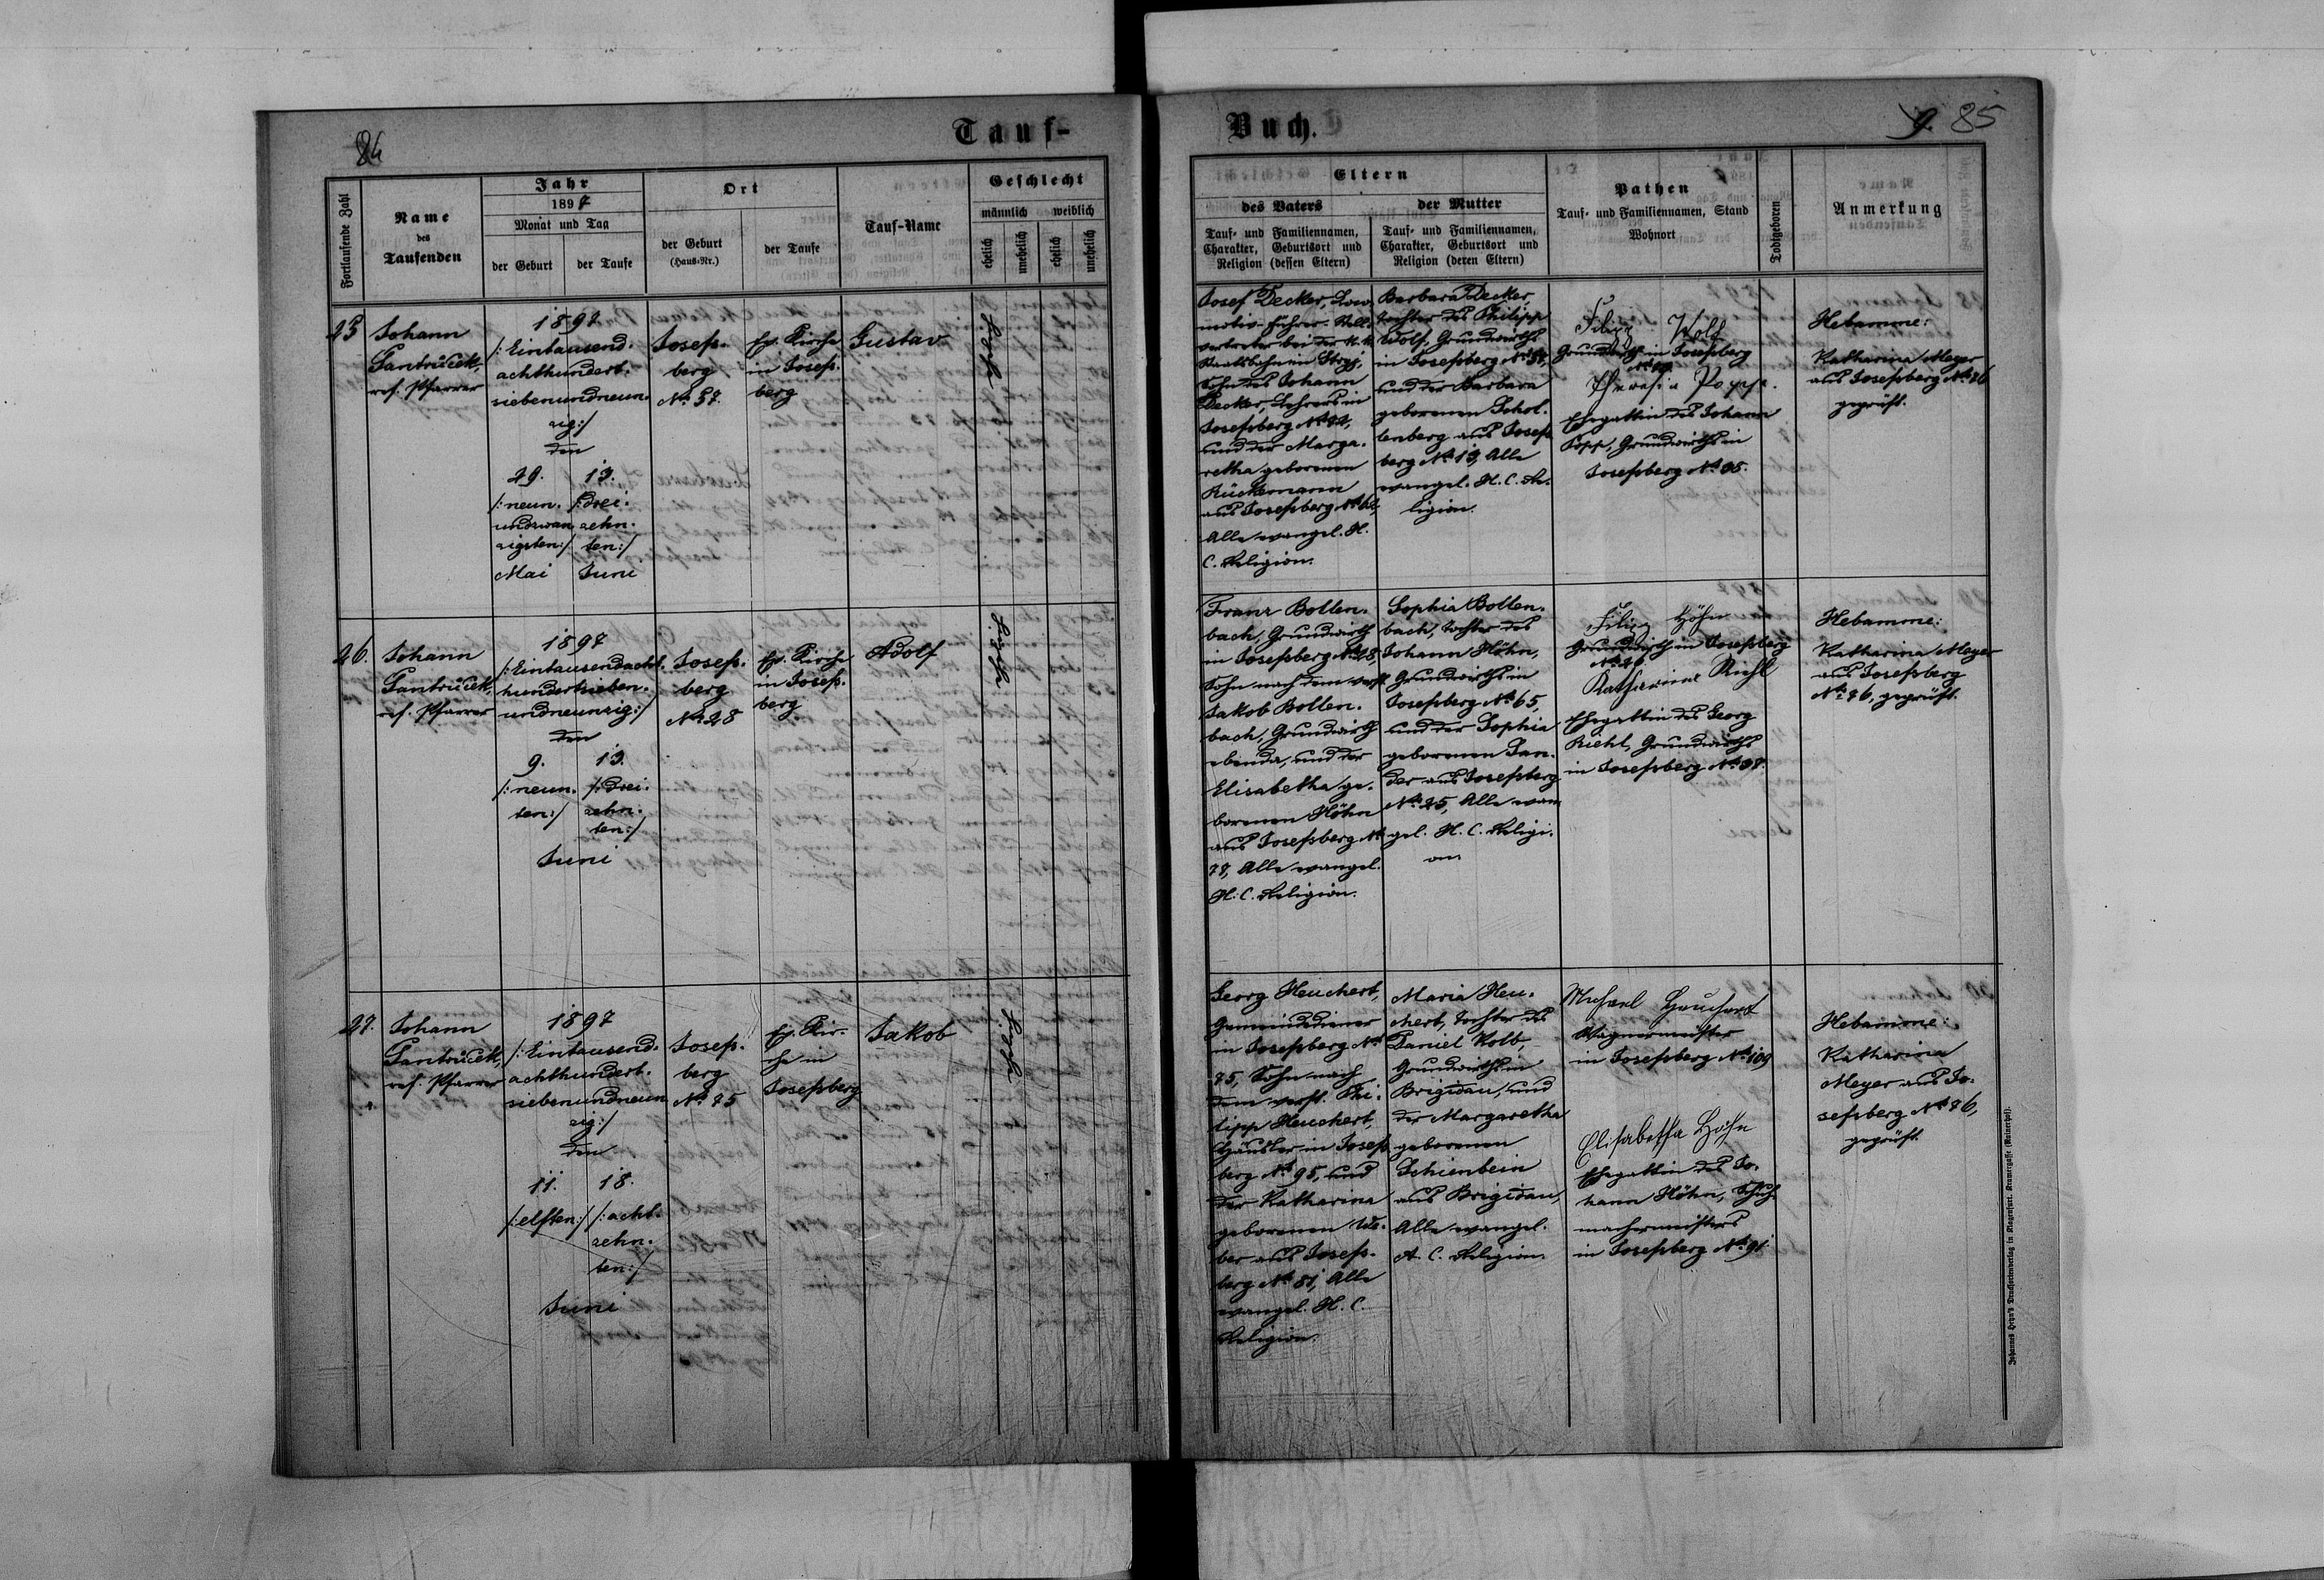 84
Tauf-
Fortlaufende Zahl
Name
des
Taufenden
Jahr
1897
Monat und Tag
der Geburt
der Taufe
Ort
der Geburt
(Haus-Nr.)
der Taufe
Tauf-Name
Geschlecht
männlich
weiblich
ehelich
unehelich
ehelich
unehelich
25
Johann
ref. Pfarrer
1897
/:Eintausend-
achthundert-
siebenundneun-
zig:/
den
29.
/:neun-
undzwan-
zigsten:/
Mai
13.
/:drei-
zehn-
ten:/
Juni
Josefs-
berg
No 57.
Ev. Kirche
in Josefs-
berg
Gustav
26.
Johann
ref. Pfarrer
1897
/:Eintausendacht-
hundertsieben-
undneunzig:/
den
9.
/:neun-
ten:/
13.
/:drei-
zehn-
ten:/
Juni
Josefs-
berg
No 28
Ev. Kirche
in Josefs-
berg
Adolf
27.
Johann
ref. Pfarrer
1897
/:Eintausend-
achthundert-
siebenundneun
zig:/
den
11.
/:elften:/
18.
/:acht-
zehn-
ten:/
Juni
Josefs-
berg
No 75
Ev. Kir-
che in
Josefsberg
Jakob
Buch.
85
Eltern
des Vaters
Tauf- und Familiennamen,
Charakter, Geburtsort und
Religion (dessen Eltern)
der Mutter
Tauf- und Familiennamen,
Charakter, Geburtsort und
Religion (deren Eltern)
Pathen
Tauf- und Familiennamen, Stand
Wohnort
Todtgeboren
Anmerkung
Josef Decker, Loco-
motiv-Führer-Stell-
vertreter bei der k.k.
Staatsbahn in Stryj,
Sohn des Johann
Decker, Lehrers in
Josefsberg
und der Marga-
retha geborenen
Rückemann
aus Josefsberg
Alle evangel. H.
C. Religion.
Barbara Decker,
Tochter des Philipp
Wolf, Grundwirths
in Josefsberg No 57,
und der Barbara
geborenen Schol-
lenberg aus Josefs
berg No 13, Alle
evangel. H. C. Re-
ligion.
Filipp Wolf
Grundwirth in Josefsberg
Theresia Popp.
Ehegattin des Johann
Popp, Grundwirths in
Josefsberg
Hebamme:
Katharina Meyer
aus Josefsberg No 76
geprüft.
Franz Bollen-
bach, Grundwirth
in Josefsberg No 28
Sohn nach dem verst.
Jakob Bollen-
bach, Grundwirth
ebenda, und der
Elisabetha ge-
borenen Höhn
aus Josefsberg No
78, Alle evangel.
H. C. Religion.
Sophia Bollen-
bach, Tochter des
Johann Höhn,
Grundwirths in
Josefsberg No 65,
und der Sophia
geborenen San-
der aus Josefsberg
No 25, Alle evan
gel. H. C. Religi-
on
Filipp Höhn
Grundwirth in Josefsberg
Katharina Riehl
Ehegattin des Georg
Riehl, Grundwirths
in Josefsberg
Hebamme:
Katharina Meyer
aus Josefsberg
No 76, geprüft.
Georg Heuchert,
Gemeindediener
in Josefsberg No
75, Sohn nach
dem verst. Phi-
lipp Heuchert,
Häusler in Josefs
berg No 95, und
der Katharina
geborenen We-
ber aus Josefs-
berg No 81, Alle
evangel. H. C.
Religion.
Maria Heu-
chert, Tochter des
Daniel Kolb,
Grundwirths in
Brigidau, und
der Margaretha
geborenen
Schienbein
aus Brigidau,
Alle evangel.
A. C. Religion.
Michael Heuchert
Wagnermeister
in Josefsberg No 109
Elisabetha Höhn
Ehegattin des Jo-
hann Höhn, Schuh-
machermeisters
in Josefsberg No 91.
Hebamme:
Katharina
Meyer aus Jo-
sefsberg No 76,
geprüft.
Johannes Heyn's Drucksortenverlag in Klagenfurt, Kramergasse (Rainerhof).